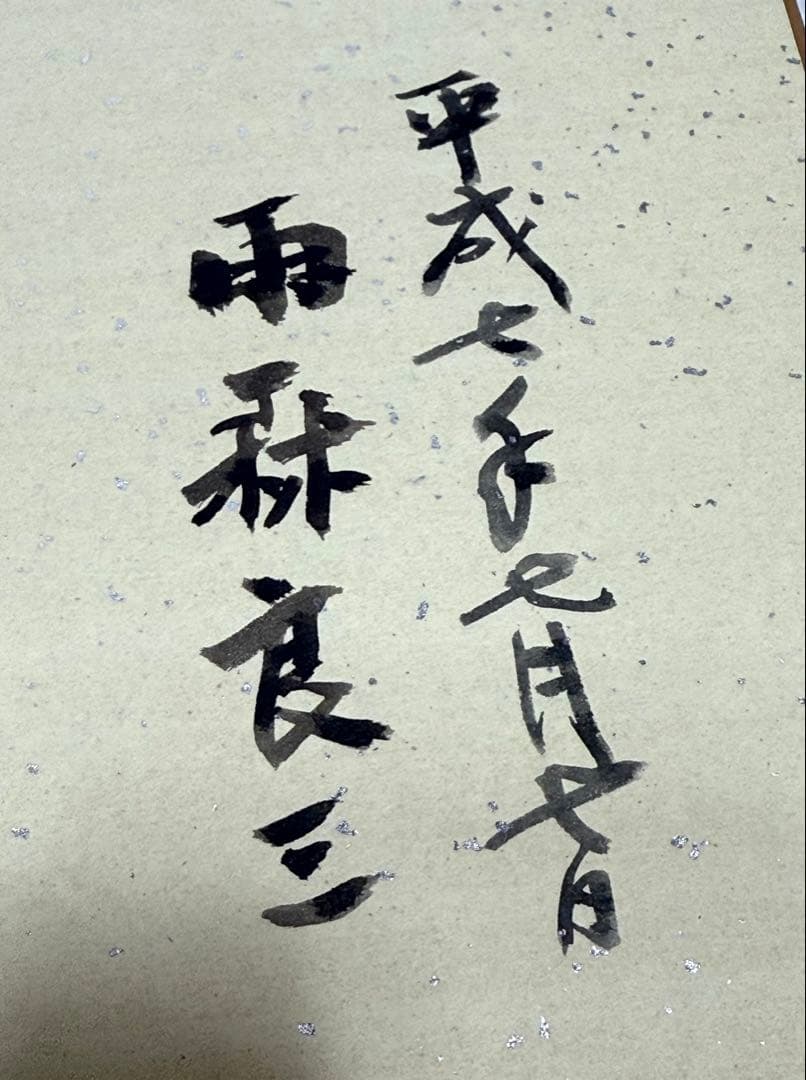 平成七年七月七日
雨森良三